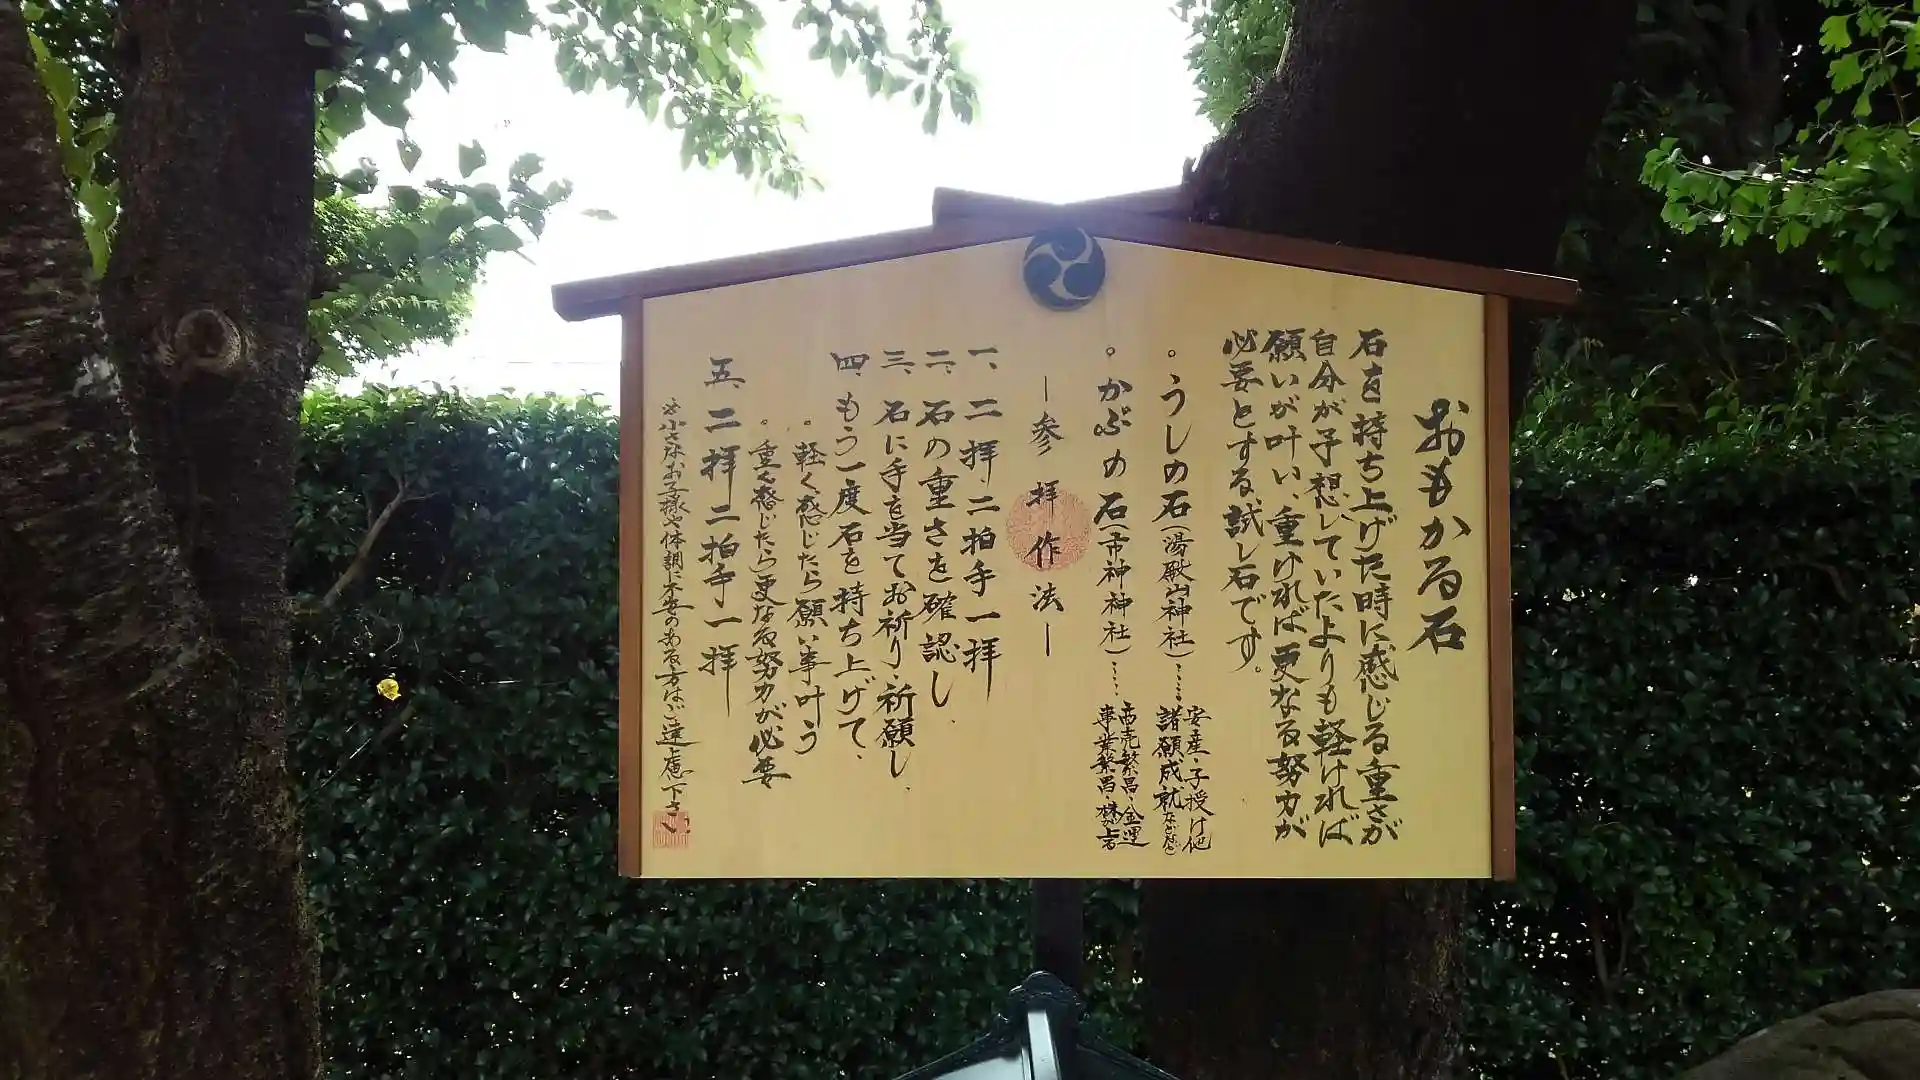 おもかる石
石を持ち上げた時に感じる重さが
自分が予想していたよりも軽ければ
願いが叶い、重ければ更なる努力が
必要とする、試し石です。
。うしの石(湯殿山神社)……
安産・子授け他
諸願成就など
。かぶの石(市神神社)……
商売繁昌・金運
事業繁昌・株の上昇
―参拝作法―
一、二拝、二拍手一拝
二、石の重さを確認し、
三、石に手を当てお祈り・祈願し、
四、もう一度石を持ち上げて、
。軽く感じたら願い事叶う
。重く感じたら更なる努力が必要
五、二拝二拍手一拝
※小さなお子様や体調に不安のある方はご遠慮下さい